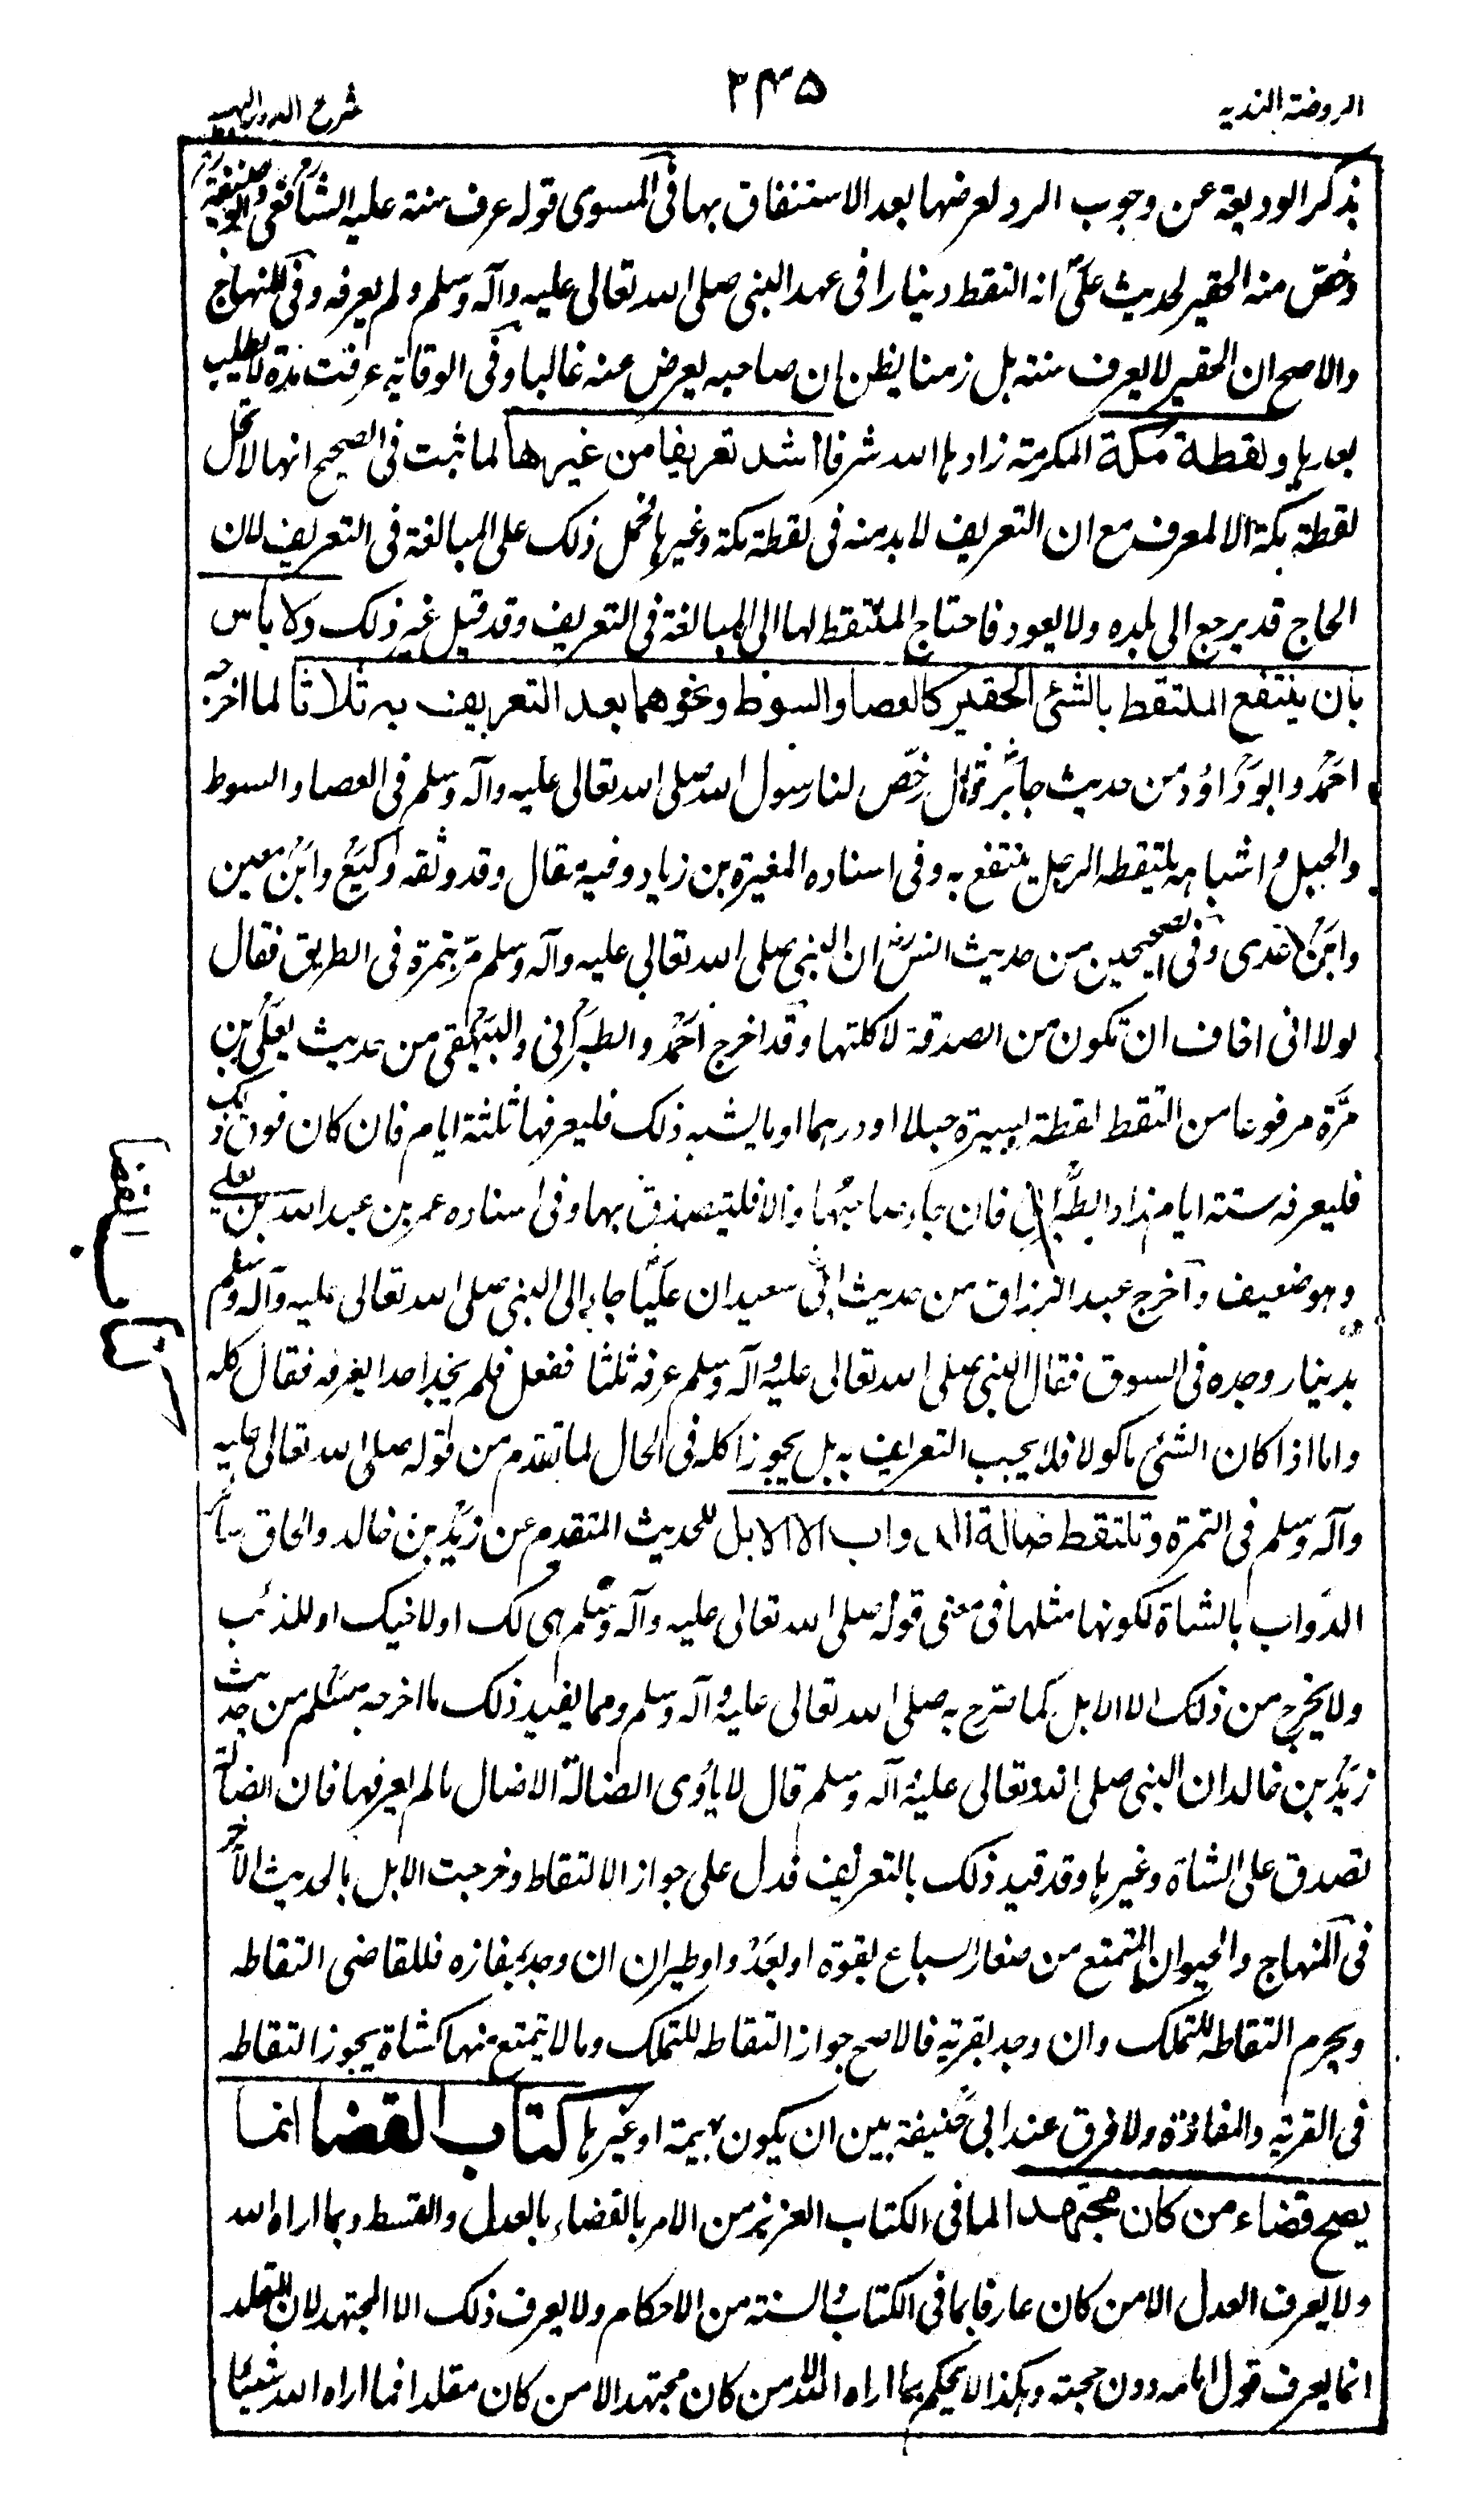 الروضة الندیه
۲۴۵
شرح الدرر البهیه
بذکر الودیعة عن وجوب الرد لعرضها بعد الاستنفاق بها فی المسوی قوله عرف سنة علیه الشافعی وابو حنیفة
وخص منه الحقیر لحدیث علی انه التقط دینارا فی عهد النبی صلی الله تعالی علیه وآله وسلم ولم یعرفه وفی المنهاج
والاصح ان الحقیر لا یعرف سنة بل زمنا یظن ان صاحبه یعرض عنه غالبا وفی الوقایة عرفت مدة لا تطلب
بعدها ولقطة مکة المکرمة زادها الله شرفا اشد تعریفا من غیرها لما ثبت فی الصحیح انها لا تحل
لقطة مکة الا لمعرف مع ان التعریف لا بد منه فی لقطة مکة وغیرها فحمل ذلک علی المبالغة فی التعریف لان
الحاج قد یرجع الی بلده ولا یعود فاحتاج الملتقط لها الی المبالغة فی التعریف وقد قیل غیر ذلک ولا باس
بان ینتفع الملتقط بالشئ الحقیر کالعصا والسوط ونحوهما بعد التعریف به ثلاثا لما اخرجه
احمد وابو داؤد من حدیث جابر قال رخص لنا رسول الله صلی الله تعالی علیه وآله وسلم فی العصا والسوط
والحبل واشباهه یلتقطه الرجل ینتفع به وفی اسناده المغیرة بن زیاد وفیه مقال وقد وثقه وکیع وابن معین
وابن عدی وفی الصحیحین من حدیث انس ان النبی صلی الله تعالی علیه وآله وسلم مر بتمرة فی الطریق فقال
لولا انی اخاف ان تکون من الصدقة لاکلتها وقد اخرج احمد والطبرانی والبیهقی من حدیث یعلی بن
مرة مرفوعا من التقط لقطة یسیرة حبلا او درهما او ما یشبه ذلک فلیعرفها ثلثة ایام فان کان فوق ذلک
فلیعرفه ستة ایام زاد الطبرانی فان جاء صاحبها والا فلیتصدق بها وفی اسناده عمر بن عبد الله بن یعلی
وهو ضعیف واخرج عبد الرزاق من حدیث ابی سعید ان علیا جاء الی النبی صلی الله تعالی علیه وآله وسلم
بدینار وجده فی السوق فقال النبی صلی الله تعالی علیه وآله وسلم عرفه ثلثا ففعل فلم یجد احدا یعرفه فقال کله
واما اذا کان الشئ ماکولا فلا یجب التعریف به بل یجوز اکله فی الحال لما تقدم من قوله صلی الله تعالی علیه
وآله وسلم فی التمرة وتلتقط ضالة الدواب الا الابل للحدیث المتقدم عن زید بن خالد والحاق سائر
الدواب بالشاة لکونها مثلها فی معنی قوله صلی الله تعالی علیه وآله وسلم هی لک او لاخیک او للذئب
ولا یخرج من ذلک الا الابل کما صرح به صلی الله تعالی علیه وآله وسلم ومما یفید ذلک ما اخرجه مسلم من حدیث
زید بن خالد ان النبی صلی الله تعالی علیه وآله وسلم قال لا یاوی الضالة الا ضال ما لم یعرفها فان الضالة
تصدق علی الشاة وغیرها وقد قید ذلک بالتعریف فدل علی جواز الالتقاط وخرجت الابل بالحدیث الآخر
فی المنهاج والحیوان الممتنع من صغار السباع بقوة او بعدو او طیران ان وجد بمفازة فللقاضی التقاطه
ویحرم التقاطه للتملک وان وجد بقریة فالاصح جواز التقاطه للتملک وما لا یمتنع منها کشاة یجوز التقاطه
فی القریة والمفازة ولا فرق عند ابی حنیفة بین ان یکون بهیمة او غیرها کتاب القضا انما
یصح قضاء من کان مجتهدا لما فی الکتاب العزیز من الامر بالقضاء بالعدل والقسط وبما اراه الله
ولا یعرف العدل الا من کان عارفا بما فی الکتاب والسنة من الاحکام ولا یعرف ذلک الا المجتهد لان المقلد
انما یعرف قول امامه دون حجته وهکذا لا یحکم بما اراه الله الا من کان مجتهدا لا من کان مقلدا فما اراه الله شیئا
کتاب القضا